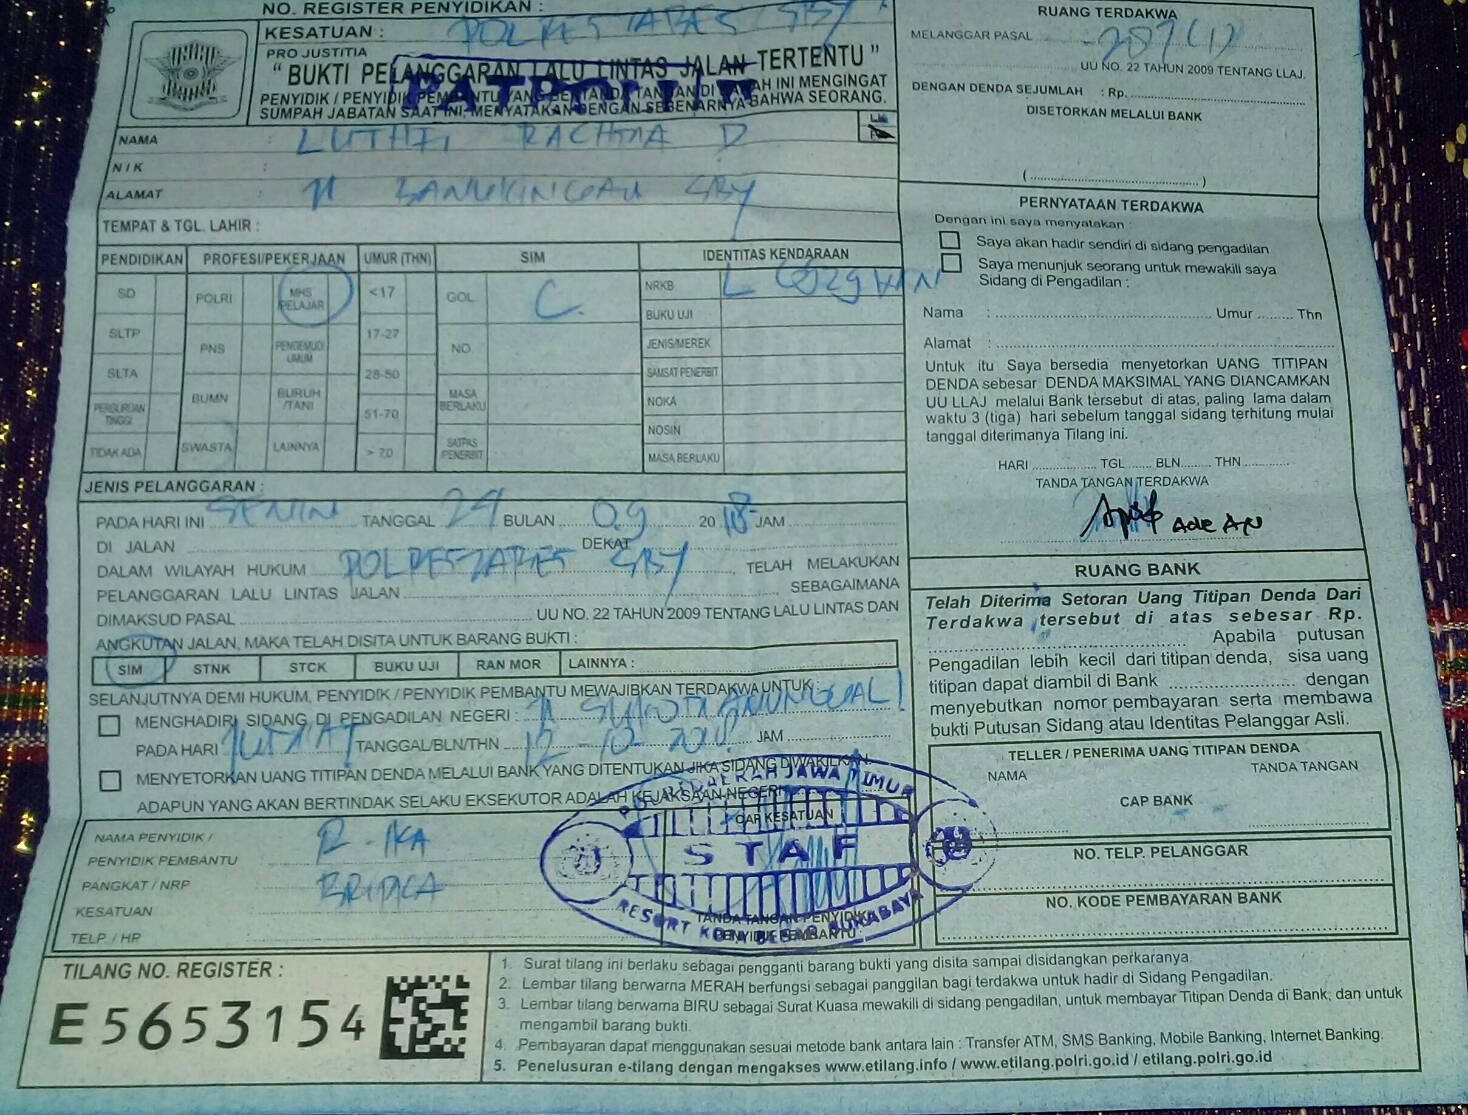 NO. REGISTER PENYIDIKAN :
KESATUAN : POLRESTABES SBY
PRO JUSTITIA
“ BUKTI PELANGGARAN LALU LINTAS JALAN TERTENTU ”
PENYIDIK / PENYIDIK PEMBANTU YANG BERTANDA TANGAN DI BAWAH INI MENGINGAT
SUMPAH JABATAN SAAT INI, MENYATAKAN DENGAN SEBENARNYA BAHWA SEORANG.
NAMA : LUTHFI RACHMA D
N I K :
ALAMAT : SBY
TEMPAT & TGL. LAHIR :
PENDIDIKAN PROFESI/PEKERJAAN UMUR (THN) SIM IDENTITAS KENDARAAN
SD POLRI MHS PELAJAR <17 GOL C. NRKB L
BUKU UJI
SLTP PNS PENGEMUDI UMUM 17-27 NO JENIS/MEREK
SLTA 28-50 SAMSAT PENERBIT
BUMN BURUH /TANI MASA BERLAKU NOKA
PERGURUAN TINGGI 51-70 NOSIN
TIDAK ADA SWASTA LAINNYA > 70 SATPAS PENERBIT MASA BERLAKU
JENIS PELANGGARAN :
PADA HARI INI SENIN TANGGAL 24 BULAN 09 20 18 JAM
DI JALAN DEKAT
DALAM WILAYAH HUKUM POLRESTABES SBY , TELAH MELAKUKAN
PELANGGARAN LALU LINTAS JALAN SEBAGAIMANA
DIMAKSUD PASAL UU NO. 22 TAHUN 2009 TENTANG LALU LINTAS DAN
ANGKUTAN JALAN, MAKA TELAH DISITA UNTUK BARANG BUKTI :
SIM STNK STCK BUKU UJI RAN MOR LAINNYA :
SELANJUTNYA DEMI HUKUM, PENYIDIK / PENYIDIK PEMBANTU MEWAJIBKAN TERDAKWA UNTUK :
MENGHADIRI SIDANG DI PENGADILAN NEGERI :
PADA HARI JUMAT TANGGAL/BLN/THN 12 - 10 - 2018 JAM
MENYETORKAN UANG TITIPAN DENDA MELALUI BANK YANG DITENTUKAN JIKA SIDANG DIWAKILKAN.
ADAPUN YANG AKAN BERTINDAK SELAKU EKSEKUTOR ADALAH KEJAKSAAN NEGERI
NAMA PENYIDIK / R. IKA
PENYIDIK PEMBANTU
PANGKAT / NRP BRIPKA
KESATUAN
TELP. / HP
CAP KESATUAN
DAERAH JAWA TIMUR
STAF
RESORT KOTA BESAR SURABAYA
TANDA TANGAN PENYIDIK/
PENYIDIK PEMBANTU
TILANG NO. REGISTER :
E5653154
RUANG TERDAKWA
MELANGGAR PASAL 287 (1)
UU NO. 22 TAHUN 2009 TENTANG LLAJ.
DENGAN DENDA SEJUMLAH : Rp.
DISETORKAN MELALUI BANK
PERNYATAAN TERDAKWA
Dengan ini saya menyatakan :
Saya akan hadir sendiri di sidang pengadilan
Saya menunjuk seorang untuk mewakili saya
Sidang di Pengadilan :
Nama : Umur Thn
Alamat :
Untuk itu Saya bersedia menyetorkan UANG TITIPAN
DENDA sebesar DENDA MAKSIMAL YANG DIANCAMKAN
UU LLAJ melalui Bank tersebut di atas, paling lama dalam
waktu 3 (tiga) hari sebelum tanggal sidang terhitung mulai
tanggal diterimanya Tilang ini.
HARI TGL BLN THN
TANDA TANGAN TERDAKWA
Ade AN
RUANG BANK
Telah Diterima Setoran Uang Titipan Denda Dari
Terdakwa tersebut di atas sebesar Rp.
Apabila putusan
Pengadilan lebih kecil dari titipan denda, sisa uang
titipan dapat diambil di Bank dengan
menyebutkan nomor pembayaran serta membawa
bukti Putusan Sidang atau Identitas Pelanggar Asli.
TELLER / PENERIMA UANG TITIPAN DENDA
NAMA TANDA TANGAN
CAP BANK
NO. TELP. PELANGGAR
NO. KODE PEMBAYARAN BANK
1. Surat tilang ini berlaku sebagai pengganti barang bukti yang disita sampai disidangkan perkaranya.
2. Lembar tilang berwarna MERAH berfungsi sebagai panggilan bagi terdakwa untuk hadir di Sidang Pengadilan.
3. Lembar tilang berwarna BIRU sebagai Surat Kuasa mewakili di sidang pengadilan, untuk membayar Titipan Denda di Bank; dan untuk
mengambil barang bukti.
4. Pembayaran dapat menggunakan sesuai metode bank antara lain : Transfer ATM, SMS Banking, Mobile Banking, Internet Banking.
5. Penelusuran e-tilang dengan mengakses www.etilang.info / www.etilang.polri.go.id / etilang.polri.go.id